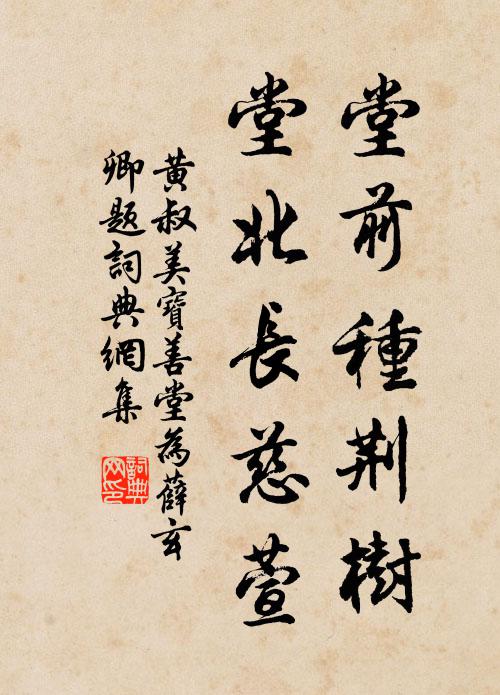 堂前種荆樹
堂北長慈萱
黄叔美寶善堂為薛玄
卿題詞典網集
詞典網印